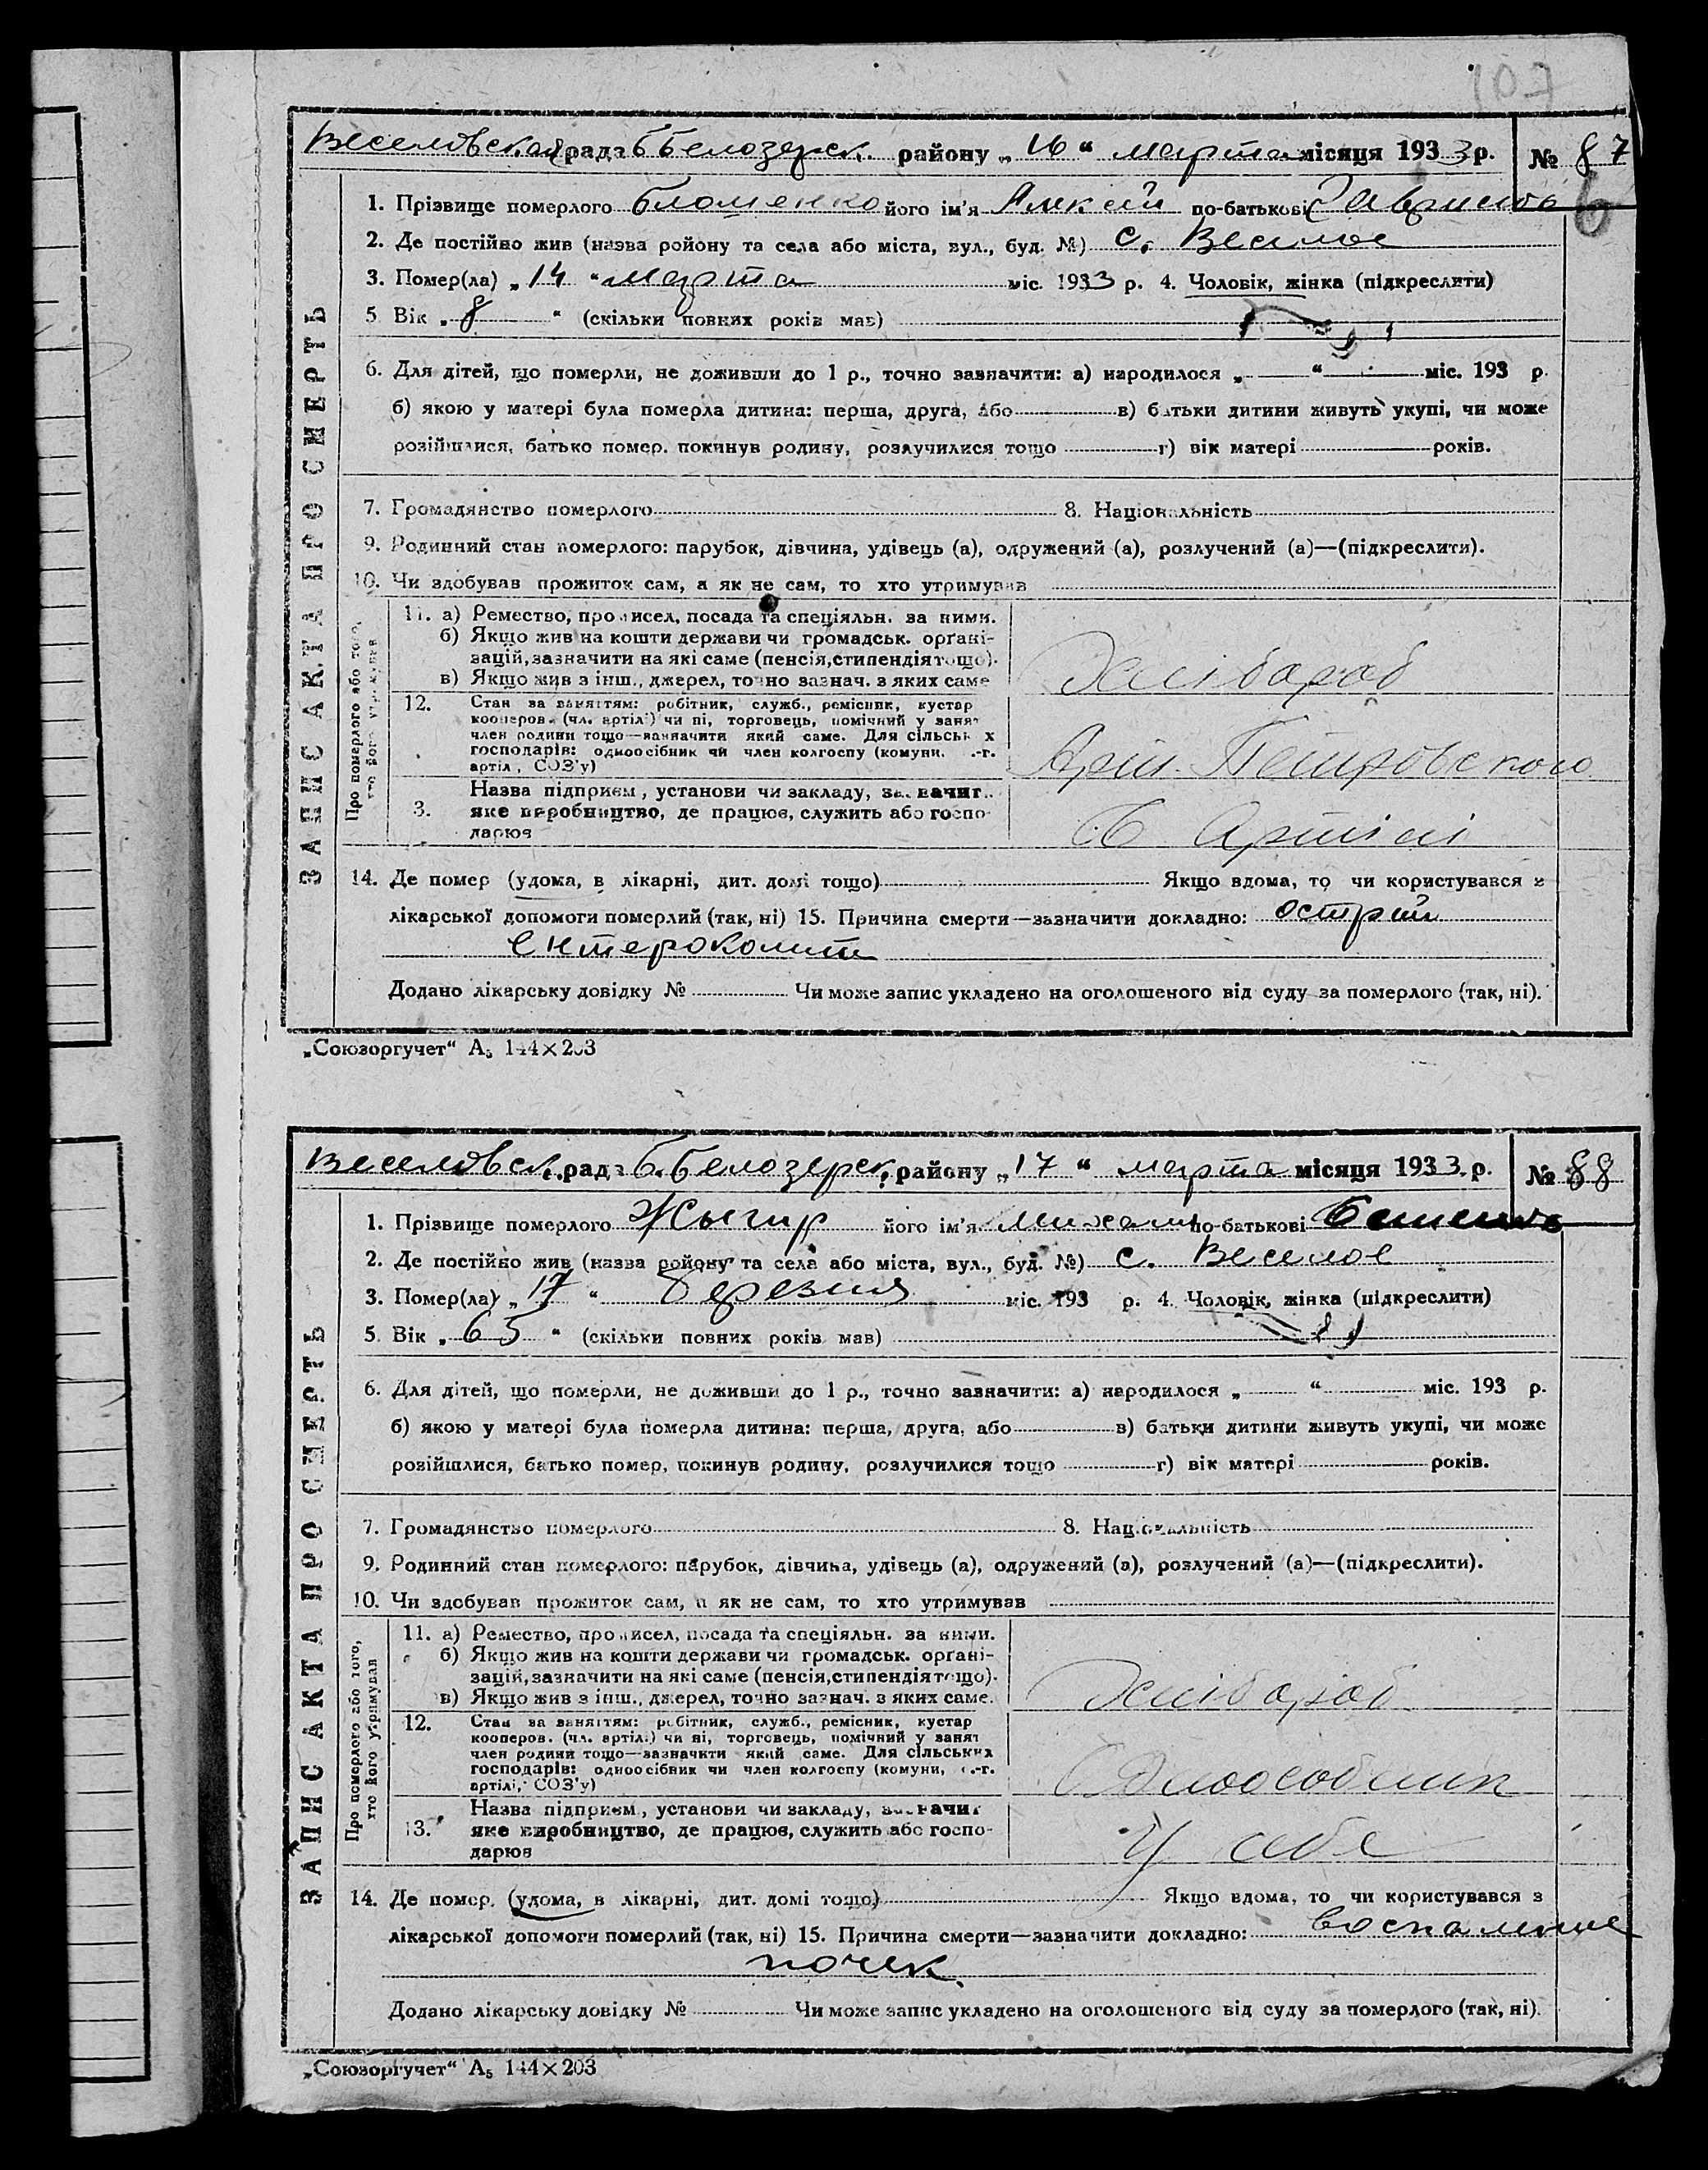 107
Веселовская рада Б Белозерск. району „16“ марта місяця 1933 р. № 87
1. Прізвище померлого його ім'я Алексій по-батькові
2. Де постійно жив (назва ройону та села або міста, вул., буд. №) с. Веселое
3. Помер(ла) „14“ марта міс. 1933 р. 4. Чоловік, жінка (підкреслити)
5 Вік „8“ (скільки повних років мав)
6. Для дітей, що померли, не доживши до 1 р., точно зазначити: а) народилося „ “ міс. 193 р.
б) якою у матері була померла дитина: перша, друга, або в) батьки дитини живуть укупі, чи може
розійшлися, батько помер, покинув родину, розлучилися тощо г) вік матері років.
7. Громадянство померлого 8. Національність
9. Родинний стан померлого: парубок, дівчина, удівець (а), одружений (а), розлучений (а)—(підкреслити).
10. Чи здобував прожиток сам, а як не сам, то хто утримував
ЗАПИС АКТА ПРО СМЕРТЬ
Про померлого або того, хто його утримував
11. а) Ремество, промисел, посада та спеціяльн. за ними.
б) Якщо жив на кошти держави чи громадськ. орґані-
зацій, зазначити на які саме (пенсія, стипендія тощо).
в) Якщо жив з інш., джерел, точно зазнач. з яких саме
Хлібороб
12. Стан за заняттям: робітник, служб., ремісник, кустар
кооперов. (чл. артілі) чи ні, торговець, помічний у занят
член родини тощо—зазначити який саме. Для сільських
господарів: одноосібник чи член колгоспу (комуни, с.-г.
артіл, СОЗ'у)
Арт. Петровского
13. Назва підприєм, установи чи закладу, зазначит
яке виробництво, де працює, служить або госпо-
дарює
В Артілі
14. Де помер (удома, в лікарні, дит. домі тощо) Якщо вдома, то чи користувався з
лікарської допомоги померлий (так, ні) 15. Причина смерти—зазначити докладно: острый
ентероколит
Додано лікарську довідку № Чи може запис укладено на оголошеного від суду за померлого (так, ні).
„Союзоргучет“ А5 144×203
Веселовск. рада Б. Белозерск. району „17“ марта місяця 1933. р. № 88
1. Прізвище померлого Жыгир його ім'я Михаил по-батькові
2. Де постійно жив (назва ройону та села або міста, вул., буд. №) с. Веселое
3. Помер(ла) „17“ березня міс. 193 р. 4. Чоловік, жінка (підкреслити)
5 Вік „65“ (скільки повних років мав)
6. Для дітей, що померли, не доживши до 1 р., точно зазначити: а) народилося „ “ міс. 193 р.
б) якою у матері була померла дитина: перша, друга, або в) батьки дитини живуть укупі, чи може
розійшлися, батько помер, покинув родину, розлучилися тощо г) вік матері років.
7. Громадянство померлого 8. Національність
9. Родинний стан померлого: парубок, дівчина, удівець (а), одружений (а), розлучений (а)—(підкреслити).
10. Чи здобував прожиток сам, а як не сам, то хто утримував
ЗАПИС АКТА ПРО СМЕРТЬ
Про померлого або того, хто його утримував
11. а) Ремество, промисел, посада та спеціяльн. за ними.
б) Якщо жив на кошти держави чи громадськ. орґані-
зацій, зазначити на які саме (пенсія, стипендія тощо).
в) Якщо жив з інш., джерел, точно зазнач. з яких саме.
Хлібороб
12. Стан за заняттям: робітник, служб., ремісник, кустар
кооперов. (чл. артілі) чи ні, торговець, помічний у занят
член родини тощо—зазначити який саме. Для сільських
господарів: одноосібник чи член колгоспу (комуни, с.-г.
артілі, СОЗ'у)
Одноособник
13. Назва підприєм, установи чи закладу, зазначит
яке виробництво, де працює, служить або госпо-
дарює
У себе
14. Де помер. (удома, в лікарні, дит. домі тощо) Якщо вдома, то чи користувався з
лікарської допомоги померлий (так, ні) 15. Причина смерти—зазначити докладно: воспаление
почек.
Додано лікарську довідку № Чи може запис укладено на оголошеного від суду за померлого (так, ні).
„Союзоргучет“ А5 144×203